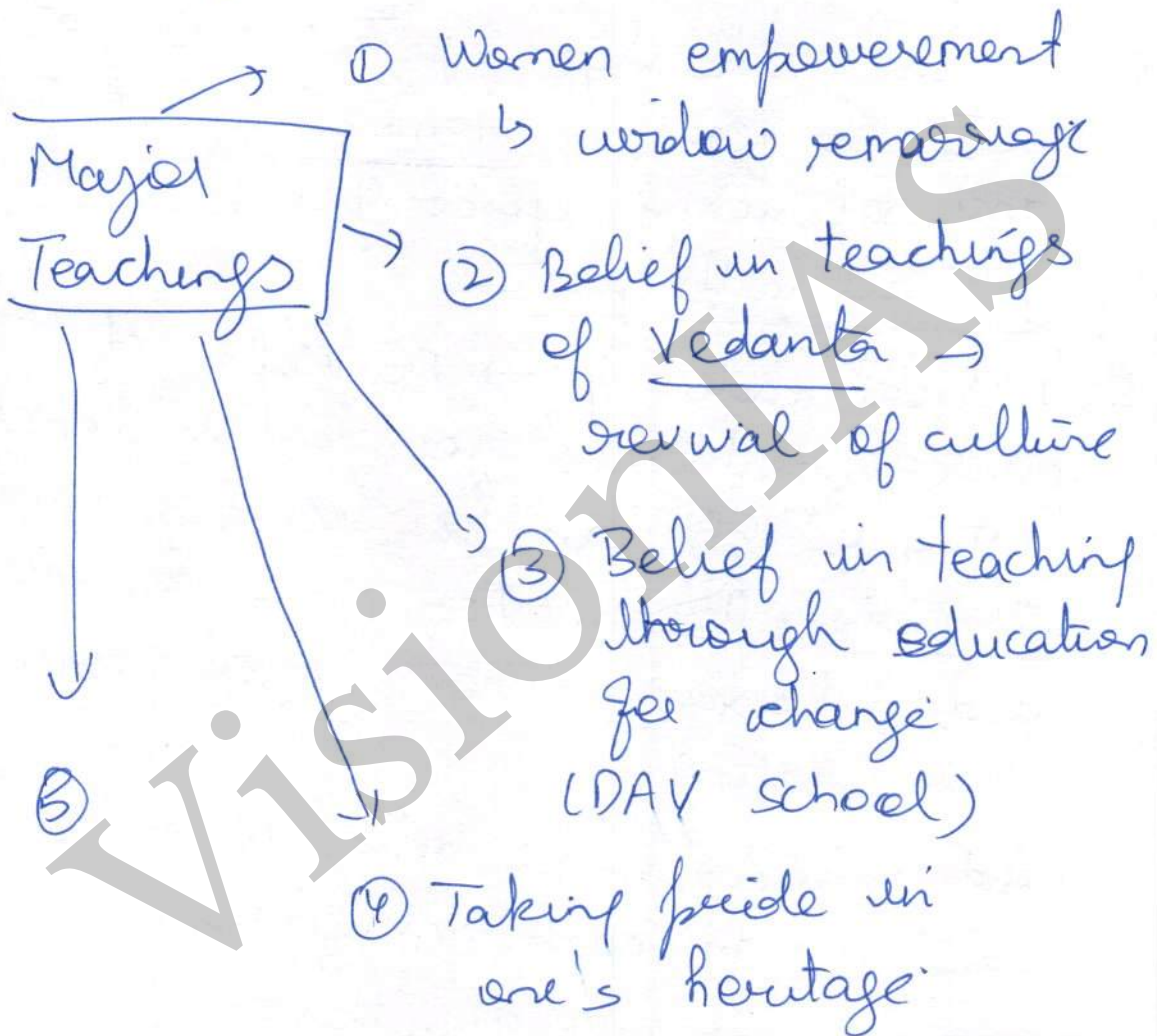 ① Women empowerement
↳ widow remarriage
Major
Teachings
② Belief in teachings
of Vedanta →
revival of culture
③ Belief in teaching
through education
for change
(DAV school)
⑤
④ Taking pride in
one's heritage
VisionIAS